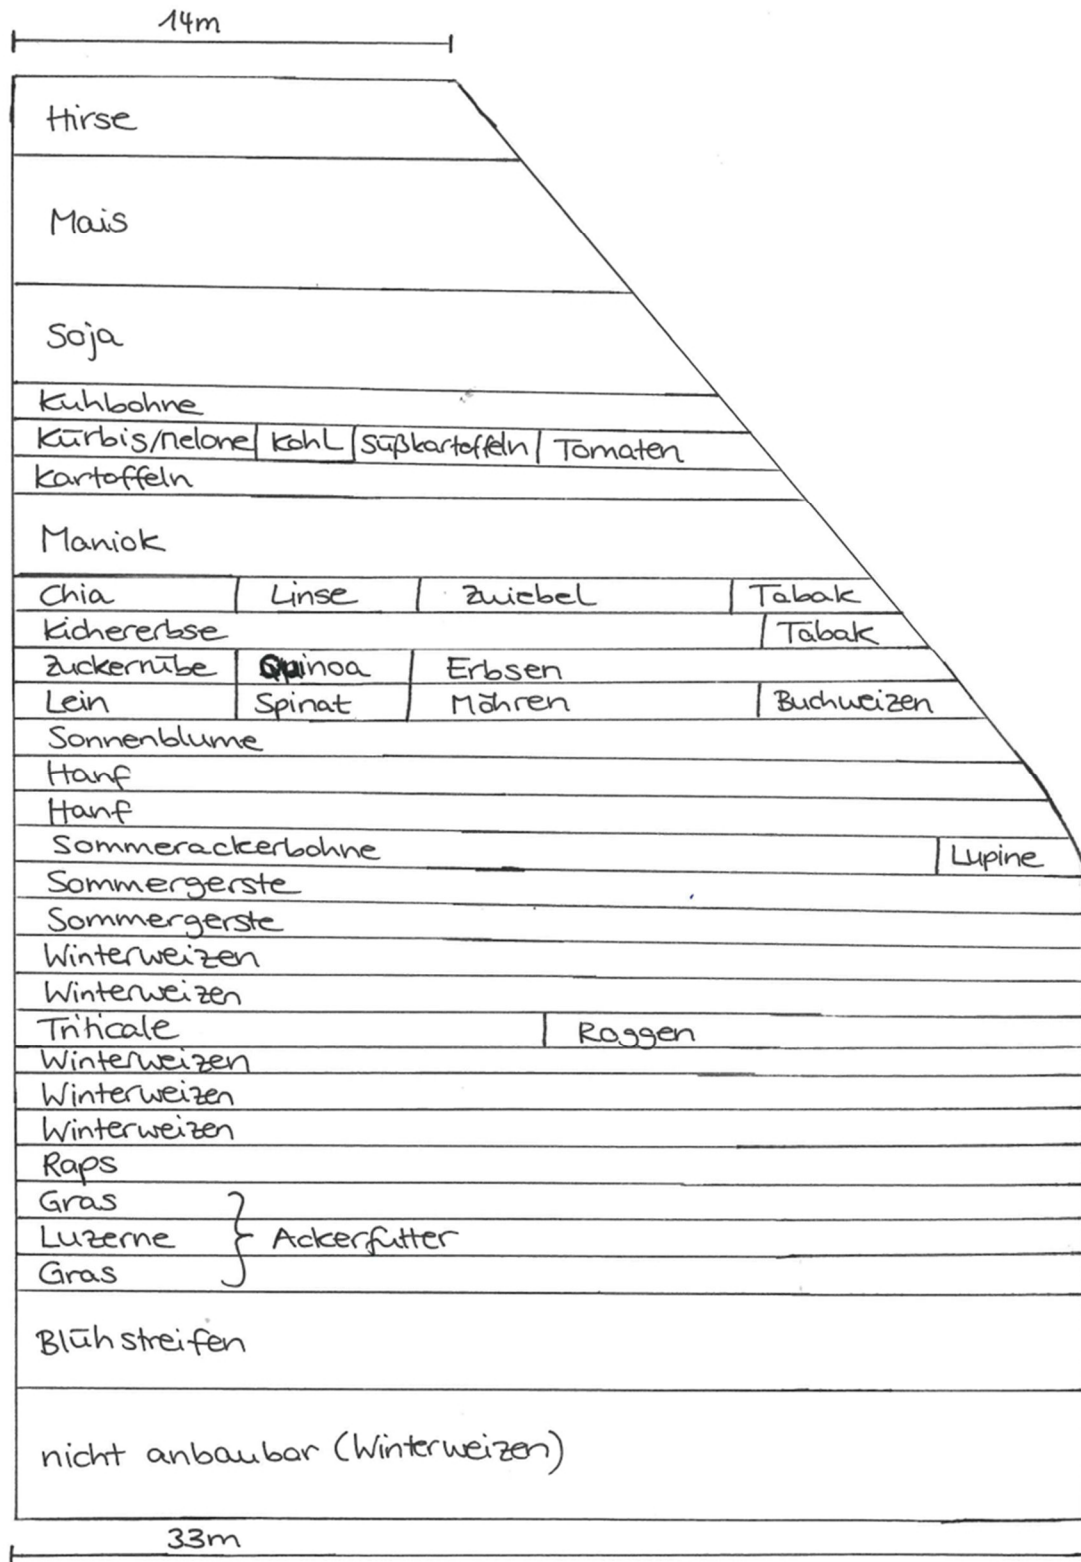 14m
Hirse
Mais
Soja
Kuhbohne
Kürbis/Melone Kohl Süßkartoffeln Tomaten
Kartoffeln
Maniok
Chia Linse Zwiebel Tabak
Kichererbse Tabak
Zuckerrübe Quinoa Erbsen
Lein Spinat Möhren Buchweizen
Sonnenblume
Hanf
Hanf
Sommerackerbohne Lupine
Sommergerste
Sommergerste
Winterweizen
Winterweizen
Triticale Roggen
Winterweizen
Winterweizen
Winterweizen
Raps
Gras
Luzerne Ackerfutter
Gras
Blühstreifen
nicht anbaubar (Winterweizen)
33m